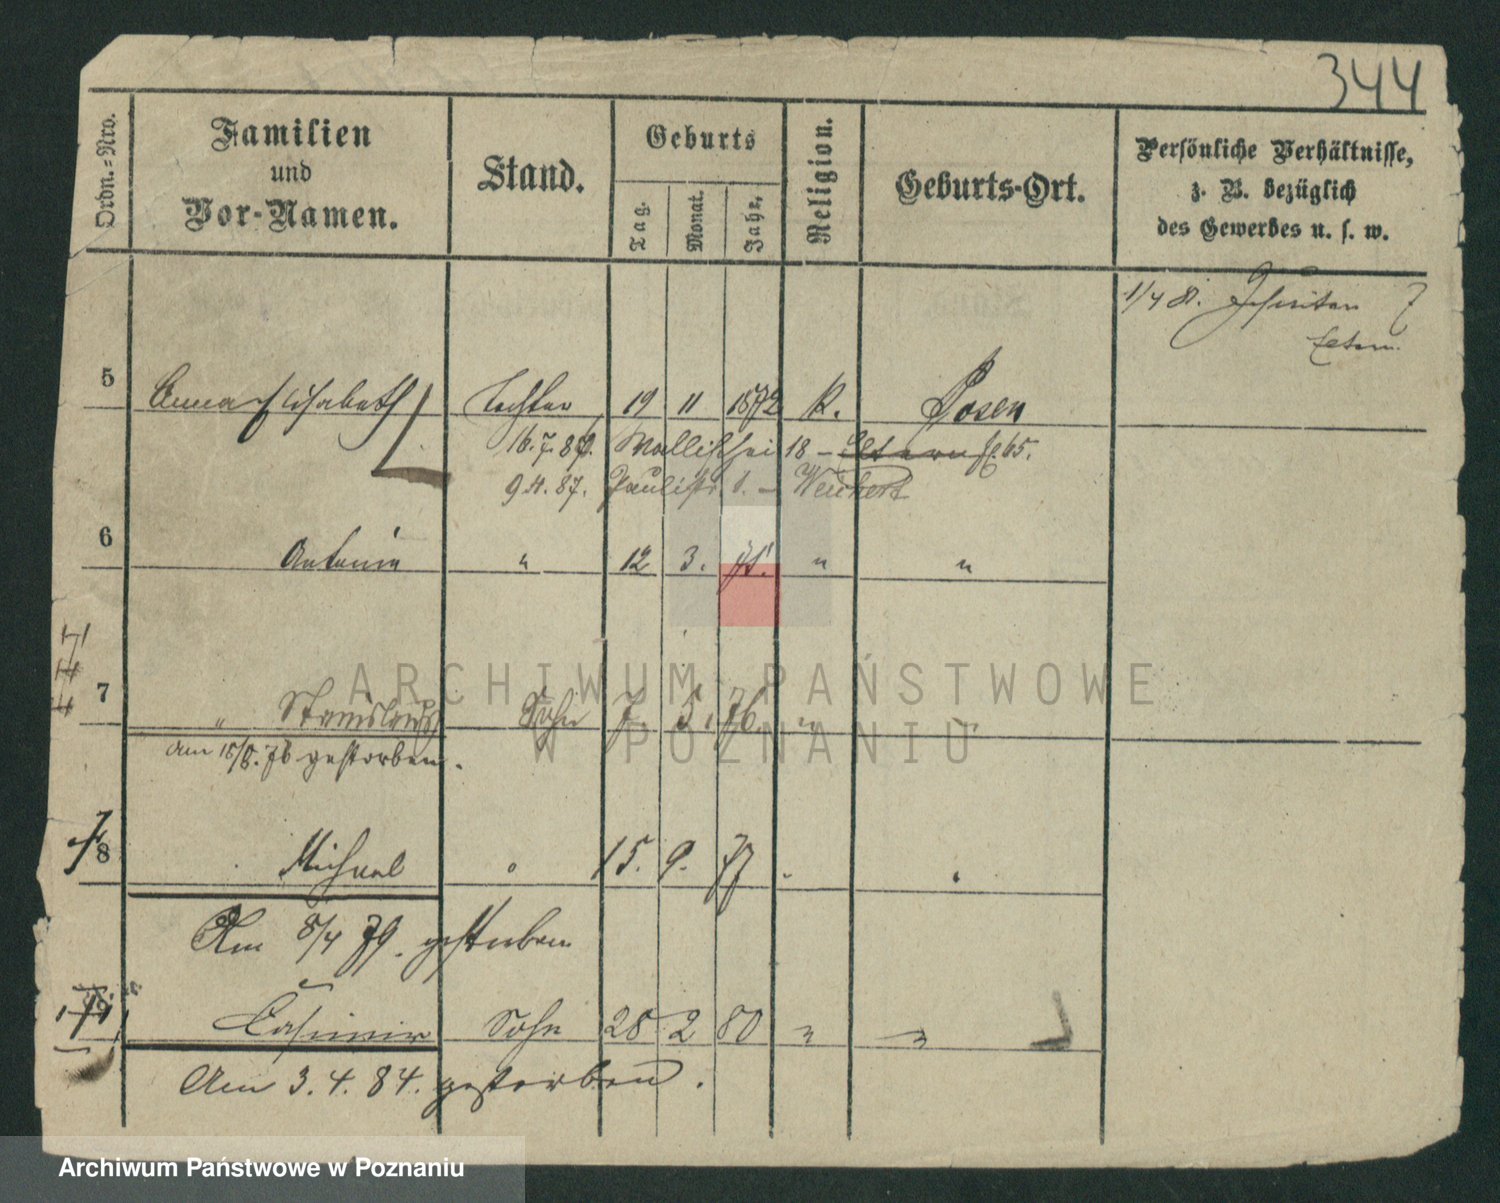 344
Ordn.=Nro.
Familien
und
Vor-Namen.
Stand.
Geburts
Tag.
Monat.
Jahr.
Religion.
Geburts-Ort.
Persönliche Verhältnisse,
z. B. bezüglich
des Gewerbes u. s. w.
1/4 81.
5 Anna Elisabeth Tochter 19 11 1872 K. Posen
16.7.86. Wallischei 18 - Eltern 65.
87. Paulistr. 1. -
6 Antonie " 12 3. " "
7 " Stanislaus Sohn 7. 5. 76. " "
Am 15/8. 76 gestorben.
8 Michael " 15. 9. 77 " "
Am 8/4 79. gestorben
Casimir Sohn 28 2 80 " "
Am 3. 4. 84. gestorben.
ARCHIWUM PAŃSTWOWE
W POZNANIU
Archiwum Państwowe w Poznaniu